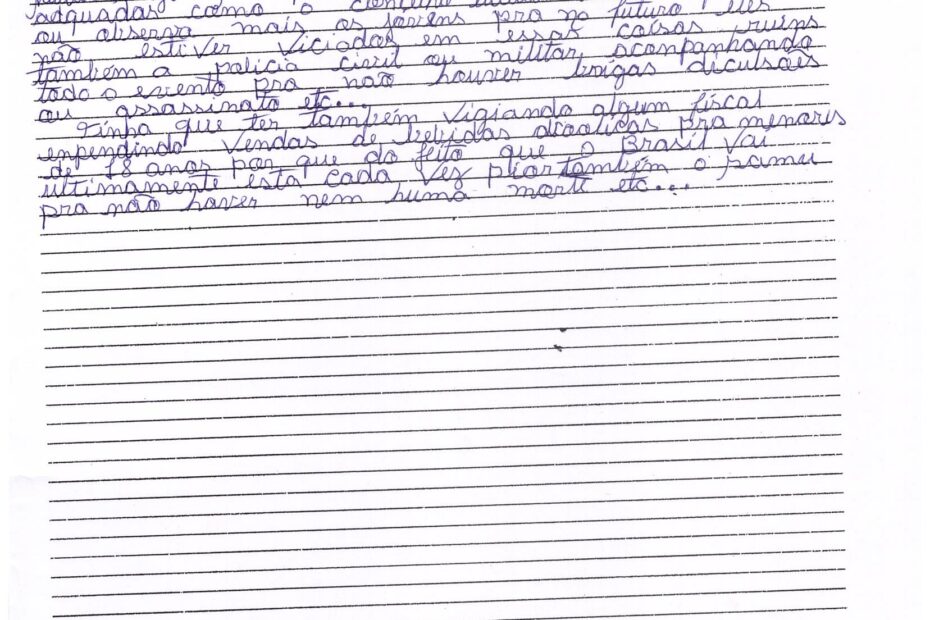 adquadas como o
ou observa mais os jovens pra no futuro eles
não estiver viciados em essas coisas ruins
também a policia civil ou militar aconpanhando
todo o evento pra não houver brigas diculsões
ou assassinato etc...
Tinha que ter também vigiando algum fiscal
enpendindo vendas de bebidas alcoolicas pra menoris
de 18 anos por que do feito que o Brasil vai
ultimamente esta cada vez pior também o samu
pra não haver nem huma morte etc...